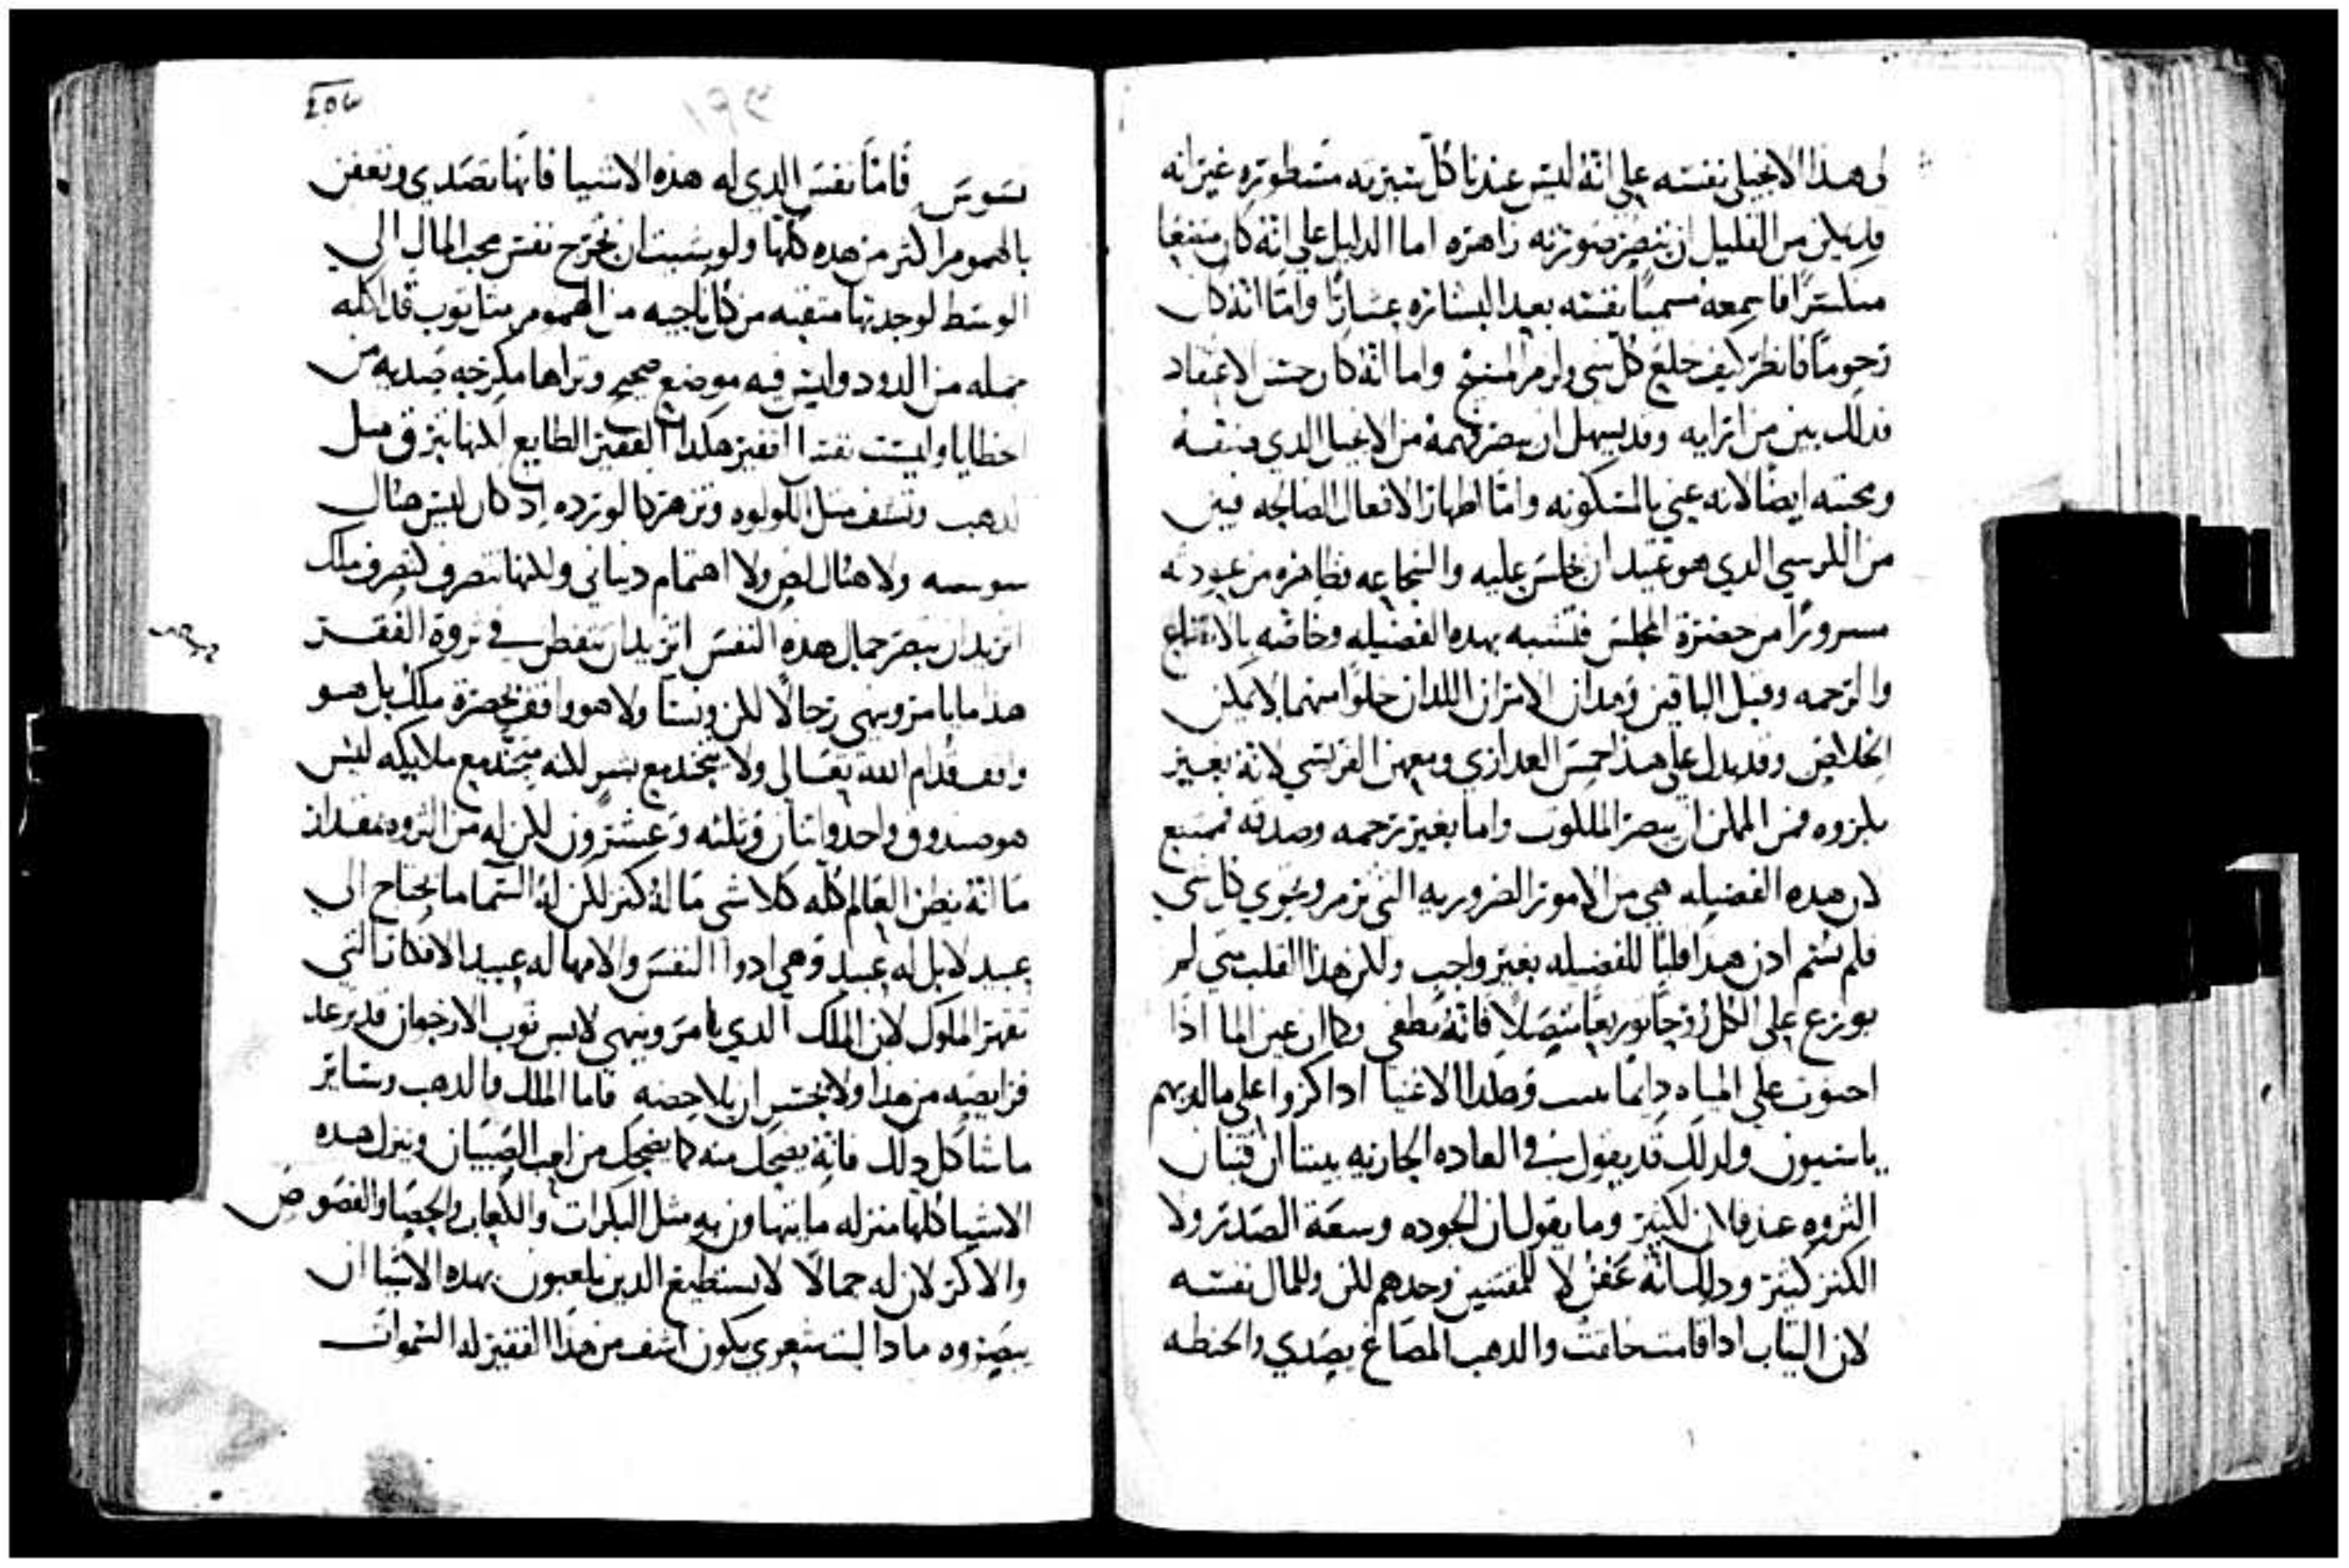 لى هذا الانجيلي نفسه على انه ليس عندنا كل سيرته مسطوره غير انه
قد يمكن من القليل ان تبصر صورته زاهره اما الدليل على انه كان متضعا
فاسمعه مسميا نفسه بعد البشاره عشارا واما انه كان
رحوما فانظر كيف خلع كل شي ولزم المسيح واما انه كان حسن الاعتقاد
فذلك بين من ارايه وقد يسهل ان تبصر فهمه من الانجيل الذي صنفه
ومحبته ايضا لانه عني بالمسكونه واما اظهار الافعال الصالحه فبين
من الكرسي الذي هو عتيد ان يجلس عليه والشجاعه فظاهره من عودته
مسرورا من حضرة المجلس فلنتشبه بهذه الفضيله وخاصه بالاتضاع
والرحمه وقبل الباقين فهذان الامران اللذان خلوا منهما لا يمكن
الخلاص وقد يدل على هذا خمس العدارى ومعهن الفريسي لانه بغير
بكوره فمن الممكن ان تبصر الملكوت واما بغير رحمه وصدقه فممتنع
لان هذه الفضيله هي من الامور الضروريه التي تزم وتحوي كل شي
فلم نسم اذن هذا قلبا للفضيله بغير واجب ولكن هذا القلب متى لم
يوزع على الكل روحا توزيعا متصلا فانه يطفى وكما ان عين الما اذا
احتوت على المياه دايما وهكذا الاغنيا اذا كنزوا على ما لديهم
ولذلك قد يقول في العاده الجاريه بيننا ان فتيان
الثروه عند فلان لكثير وما يقول ان الجوده وسعة الصدر ولا
الكنز كثير وذلك انه عفن لا للمقتنين وحدهم لكن وللمال نفسه
لان الثياب اذا قامت خامت والذهب المصاغ يصدي والحنطه
تسوس فاما نفس الذي له هذه الاشيا فانها تصدي وتعفن
بالهموم اكثر من هذه كلها ولو شيت ان تخرج نفس محب المال الى
الوسط لوجدتها متقبه من كل ناحيه من الهموم مثل ثوب قد اكله
من الدود وليس فيه موضع صحيح وتراها مكرخه صديه من
الخطايا وليست نفس الفقير هكذا الفقير الطايع لكنها تبرق مثل
الذهب وتشف مثل اللولوه وتزهر كالورده اذ كان ليس هناك
سوسه ولا هناك لص ولا اهتمام دنياني ولكنها تتصرف كتصرف ملك
اتريد ان تبصر جمال هذه النفس اتريد ان تتفطن في ثروة الفقر
هذا ما يامر وينهي رجالا لكن ولا هو واقف بحضرة ملك بل هو
واقف قدام الله تعالى ولا يتجند مع بشر لكنه متجند مع ملايكه ليس
هو صندوق واحد واثنان وثلثه وعشرون لكن له من الثروه بمقدار
ما انه يظن العالم كله كلا شي ما له كنز لكن له السما ما يحتاج الى
عبيد لا بل له عبيد وهي ادوا النفس والامها له عبيد الافكار التي
تقهر الملوك لان الملك الذي يامر وينهي لابس ثوب الارجوان قد ترعد
فرايصه من هذا ولا يجسر ان يلاحضه فاما الملك والذهب وساير
ما شاكل ذلك فانه يضحك منه كما يضحك من لعب الصبيان وينزل هذه
الاشيا كلها منزله ما يتهاون به مثل البكرات والكعاب والحصا والفصوص
والاكر لان له جمالا لا يستطيع الذين يلعبون بهذه الاشيا ان
يبصروه ماذا ليت شعري يكون اشف من هذا الفقير له السموات